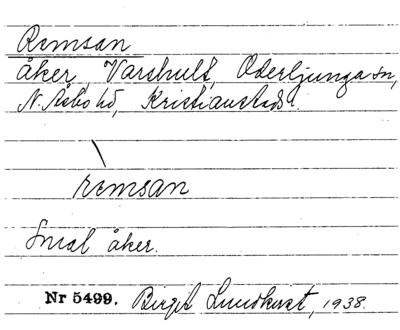 Remsan
åker, Varshult, Oderljunga sn,
N. Åsbo hd, Kristianstads l.
remsan
Smal åker.
Nr 5499. Birgit Lundkvist, 1938.